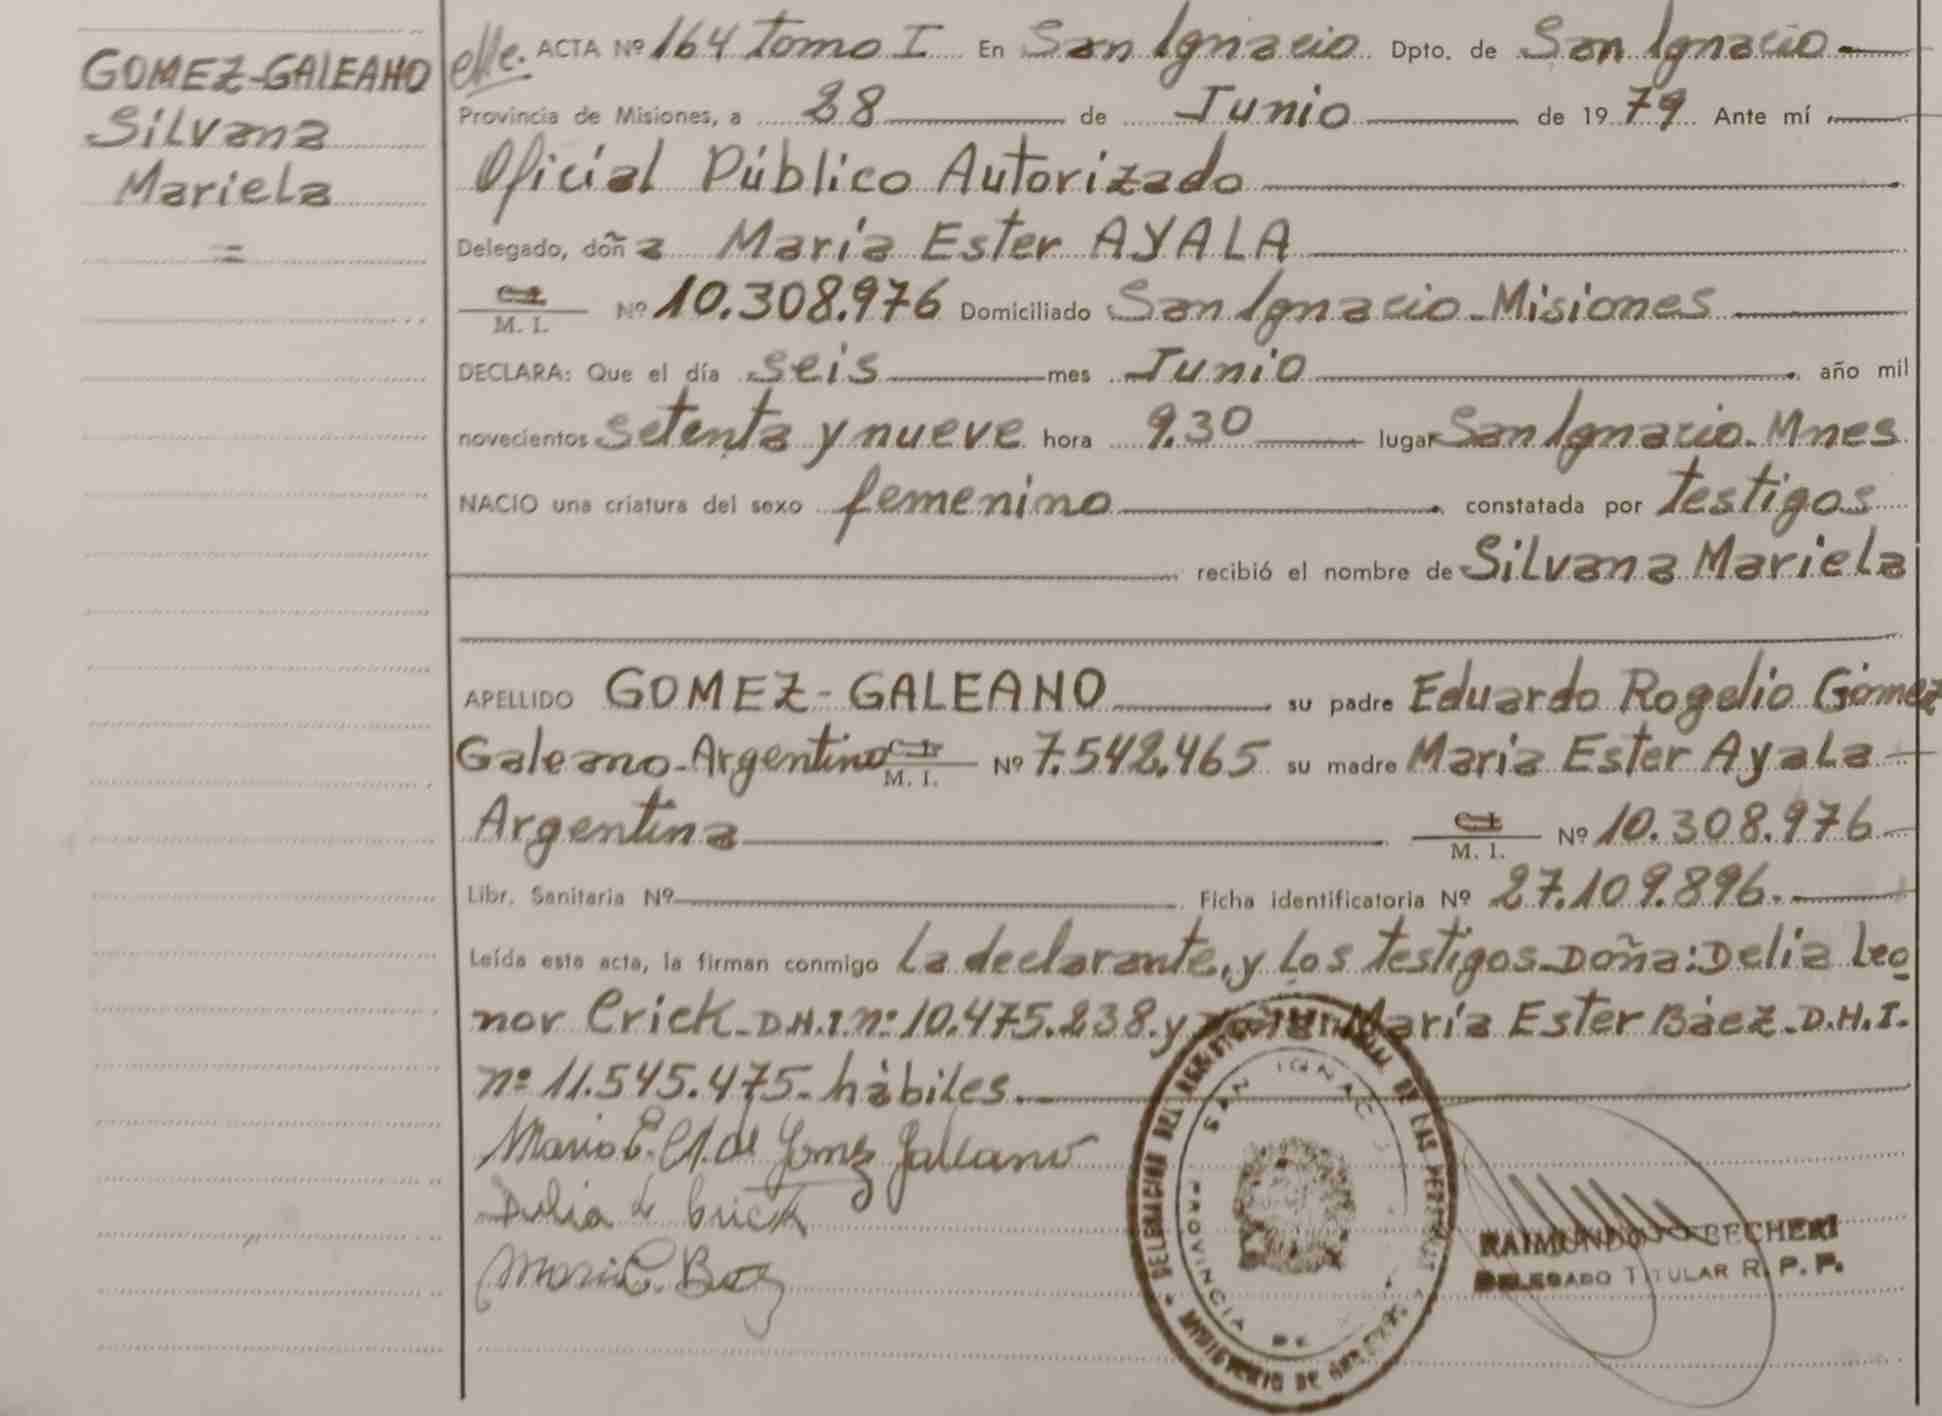 GOMEZ-GALEANO
Silvana
Mariela
ACTA Nº 164 Tomo I En San Ignacio Dpto. de San Ignacio
Provincia de Misiones, a 28 de Junio de 1979 Ante mí
Oficial Público Autorizado
Delegado, doña María Ester AYALA
C.I.
M. I. Nº 10.308.976 Domiciliado San Ignacio - Misiones
DECLARA: Que el día seis mes Junio año mil
novecientos setenta y nueve hora 9.30 lugar San Ignacio - Mnes
NACIO una criatura del sexo femenino constatada por testigos
recibió el nombre de Silvana Mariela
APELLIDO GOMEZ-GALEANO su padre Eduardo Rogelio Gómez
Galeano - Argentino C.I.
M. I. Nº 7.542.465 su madre María Ester Ayala -
Argentina C.I.
M. I. Nº 10.308.976
Libr. Sanitaria Nº Ficha identificatoria Nº 27.109.896.
Leída esta acta, la firman conmigo la declarante, y los testigos - Doña: Delia Leo
nor Crick - D.N.I. nº 10.475.238. y María Ester Báez - D.N.I.
nº 11.545.475 - hábiles.
María E. A. de Gomez Galeano
Delia L Crick
María E. Baez
DELEGACION DEL REGISTRO PROVINCIAL DE LAS PERSONAS
SAN IGNACIO
PROVINCIA DE
MINISTERIO DE GOBIERNO
RAIMUNDO BECHERI
DELEGADO TITULAR R. P. P.